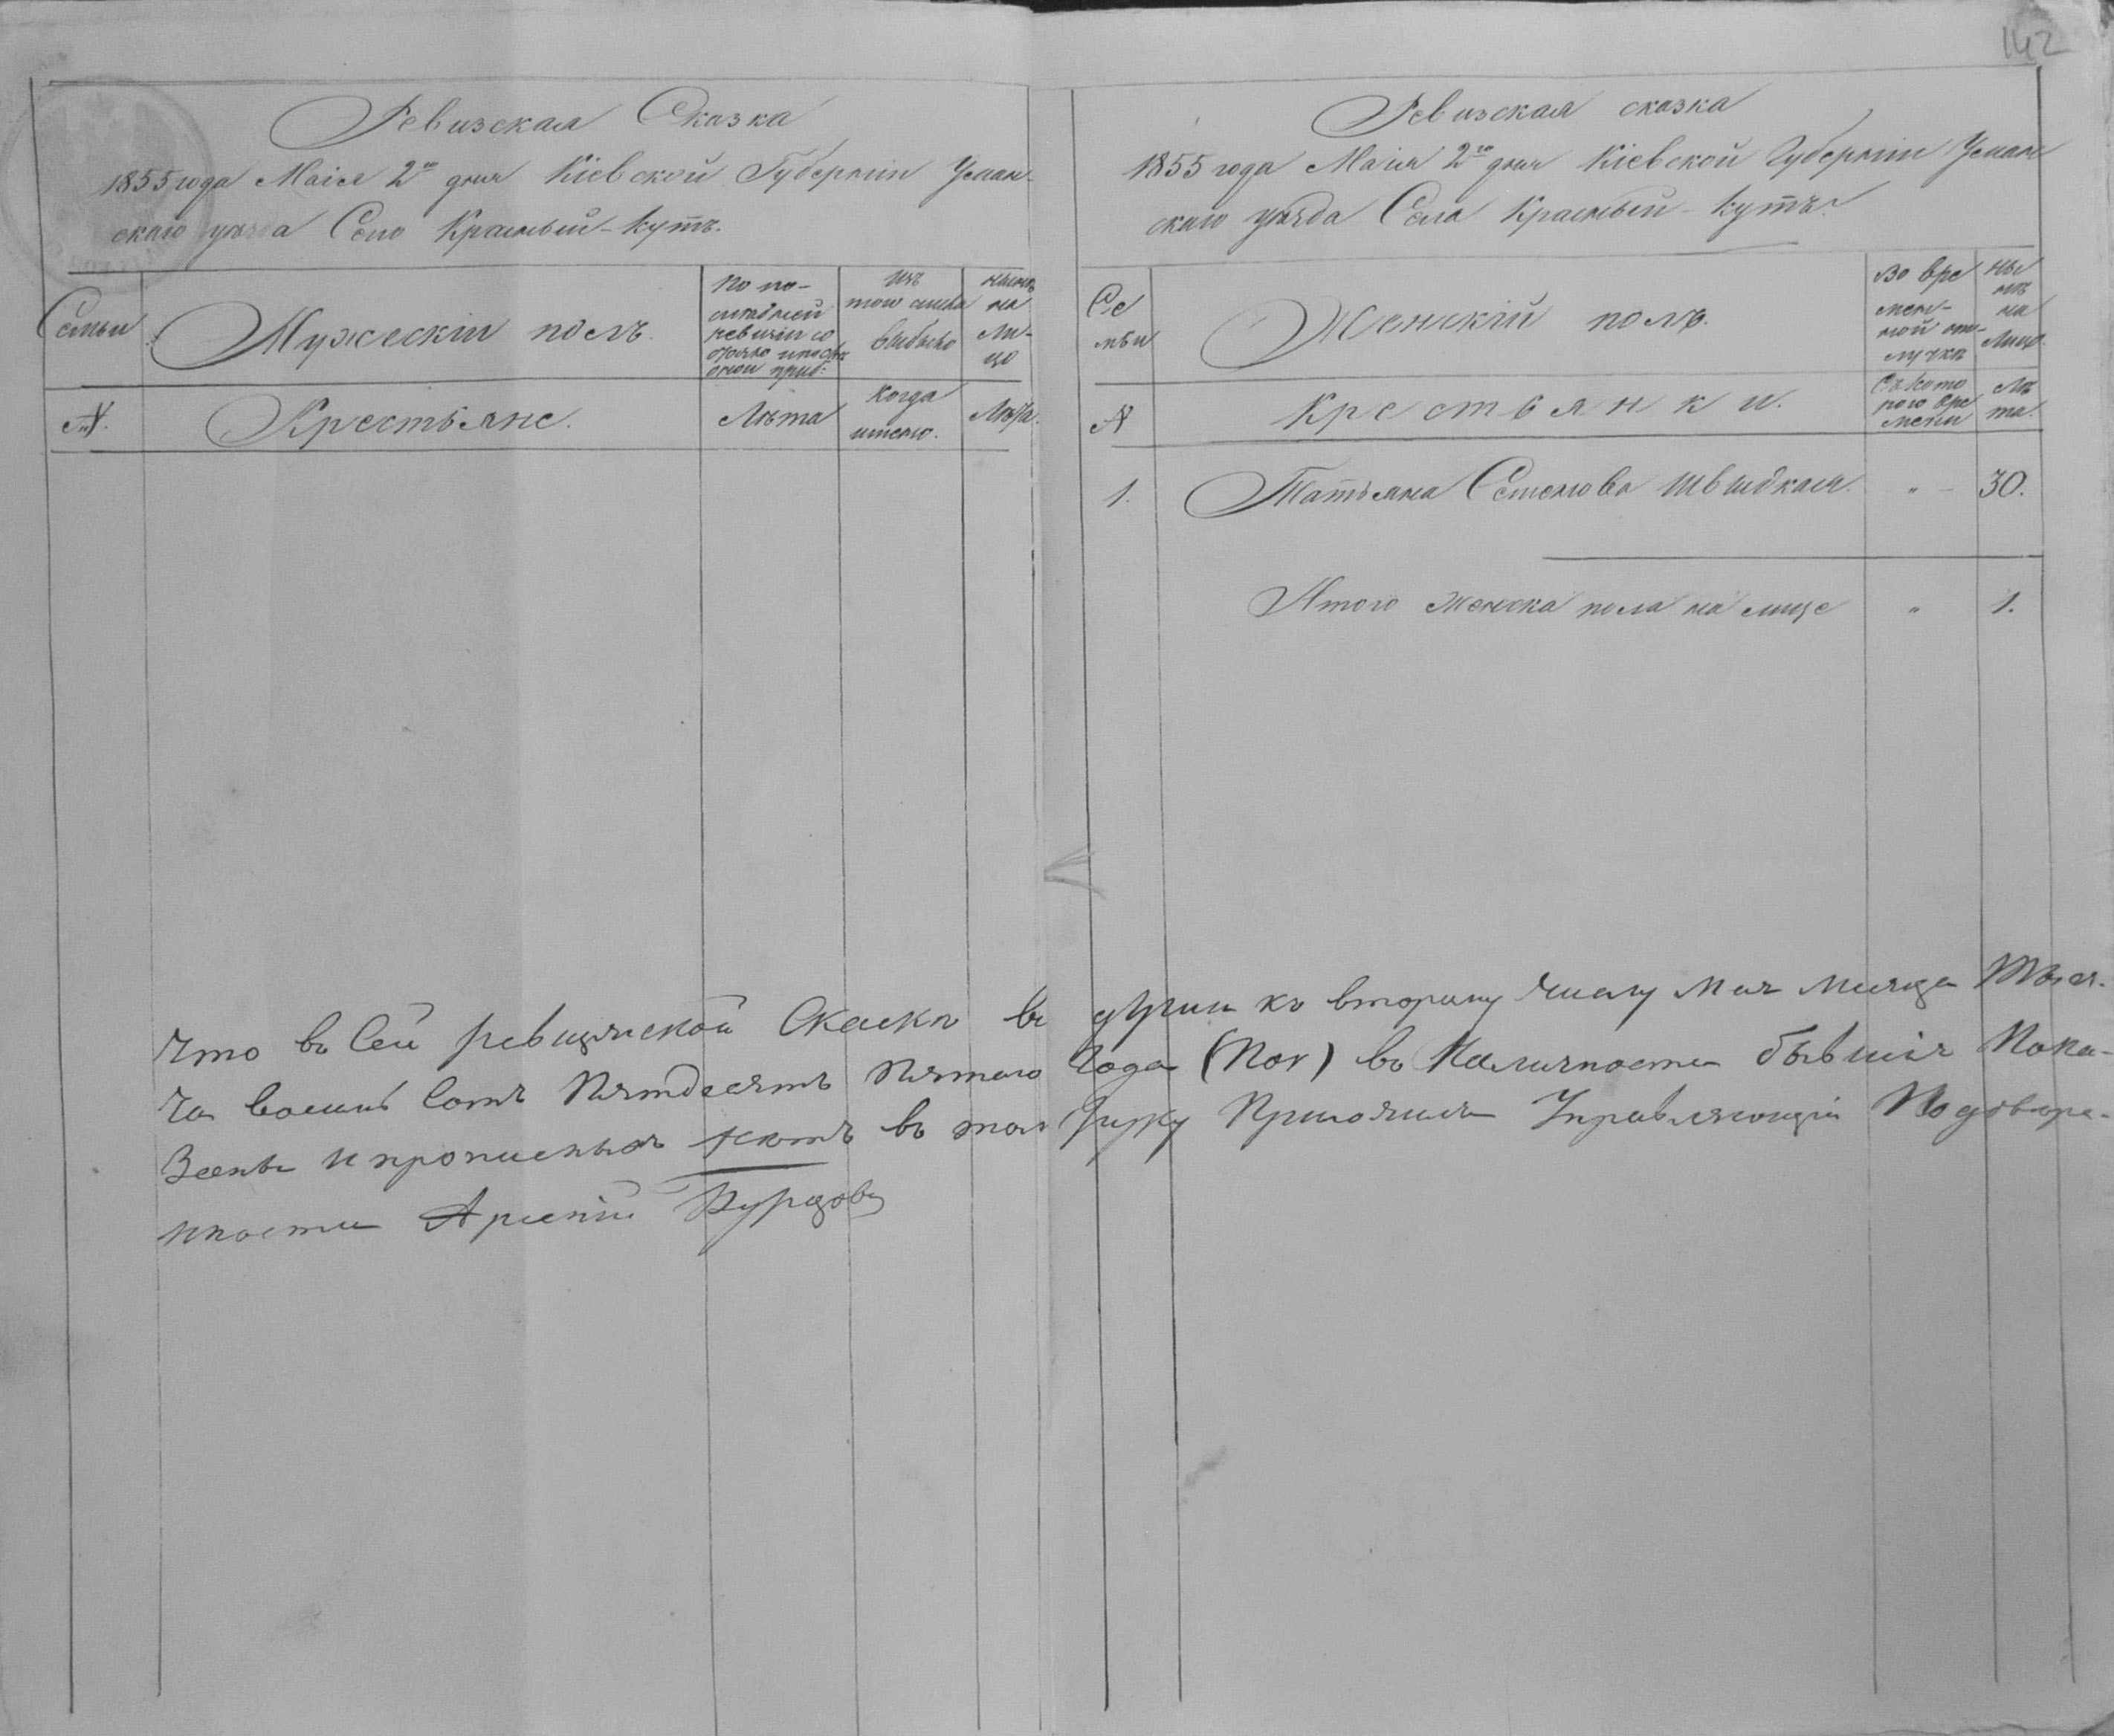 142
Ревизская Сказка
1855 года Маія 2го дня Кіевской Губерніи Уман-
скаго уезда Село Красный-Кутъ.
Семьи
Мужескій полъ.
По по-
следней
ревизіи со
Изъ
того числа
выбыло
ныне
на
ли-
цо
№.
Крестьяне.
Лѣта
Когда
имено.
Лѣта.
Ревизская сказка
1855 года Маія 2го дня Кіевской Губерніи Уман
скаго уезда Села Красный-Кутъ.
Се
мьи
Женскій полъ.
Во вре
мен-
ной от-
лучкѣ
ны
нѣ
на
Лицо.
№
Крестьянки.
Съ кото
рого вре
мени
Лѣ
та.
1. Татьяна Семенова Швидкая. „ - 30.
Итого женска пола на лице „ 1.
Что въ Сей ревизской Скаски въ къ второму числу Мая Месяца Тыся-
ча восемь Сотъ Пятдесятъ Пятаго Года въ Наличности бывшія Пока-
Заны и прописныхъ нетъ въ том руку Приложилъ Управляющій По доверен-
ности Арсеній